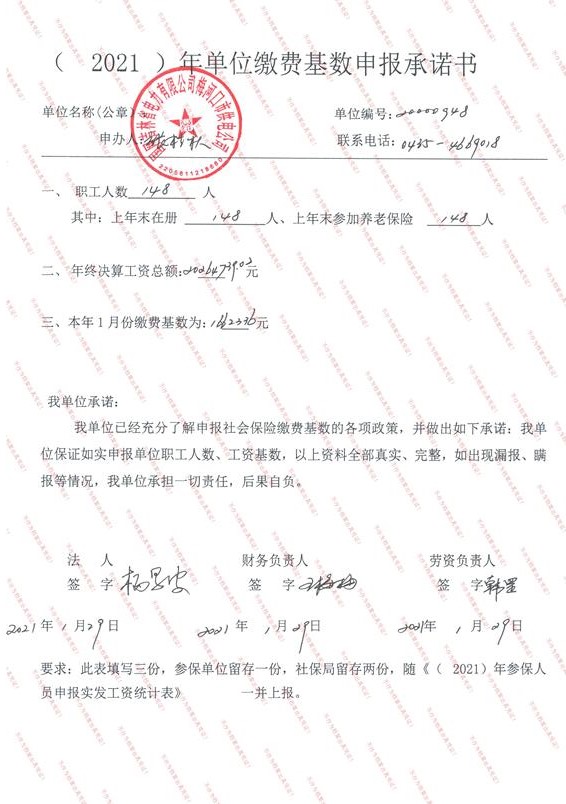 （ 2021 ）年单位缴费基数申报承诺书
单位名称(公章) 单位编号: 20000948
申办人: 联系电话: 0435-4669018
吉林省电力有限公司梅河口市供电公司
2200811218680
一、 职工人数 148 人
其中: 上年末在册 148 人、上年末参加养老保险 148 人
二、 年终决算工资总额: 20264739.02 元
三、本年 1 月份缴费基数为: 元
我单位承诺:
我单位已经充分了解申报社会保险缴费基数的各项政策，并做出如下承诺: 我单
位保证如实申报单位职工人数、工资基数，以上资料全部真实、完整，如出现漏报、瞒
报等情况，我单位承担一切责任，后果自负。
法 人 财务负责人 劳资负责人
签 字 签 字 签 字 韩罡
2021 年 1 月 29 日 2021 年 1 月 29 日 2021 年 1 月 29 日
要求: 此表填写三份，参保单位留存一份，社保局留存两份，随《（ 2021）年参保人
员申报实发工资统计表》 一并上报。